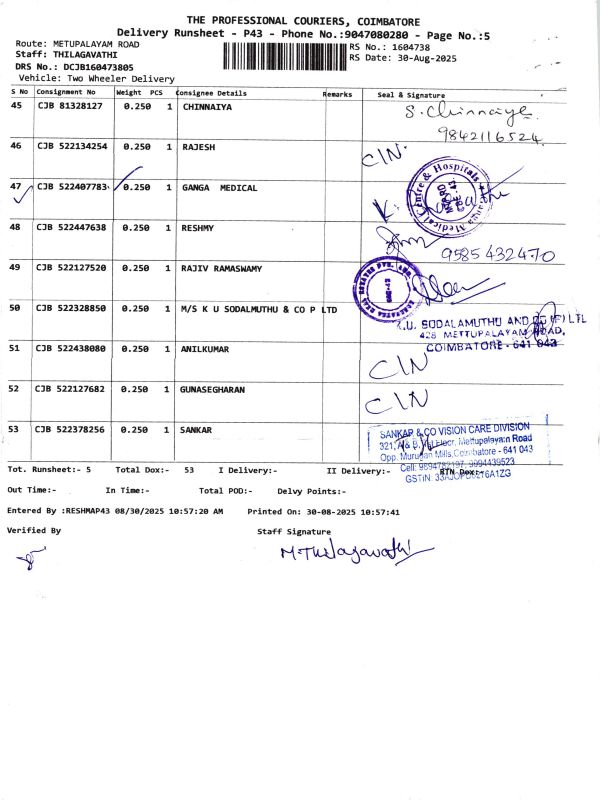 THE PROFESSIONAL COURIERS, COIMBATORE
Delivery Runsheet - P43 - Phone No.:9047080280 - Page No.:5
Route: METUPALAYAM ROAD
RS No.: 1604738
Staff: THILAGAVATHI
RS Date: 30-Aug-2025
DRS No.: DCJB160473805
Vehicle: Two Wheeler Delivery
S No Consignment No Weight PCS Consignee Details Remarks Seal & Signature
45 CJB 81328127 0.250 1 CHINNAIYA S. Chinnaiya
9842116524
46 CJB 522134254 0.250 1 RAJESH CIN.
47 CJB 522407783 0.250 1 GANGA MEDICAL
Medical Centre & Hospitals
48 CJB 522447638 0.250 1 RESHMY
9585432470
49 CJB 522127520 0.250 1 RAJIV RAMASWAMY
50 CJB 522328850 0.250 1 M/S K U SODALMUTHU & CO P LTD
K.U. SODALAMUTHU AND CO (P) LTD
428 METTUPALAYAM ROAD,
COIMBATORE - 641 043
51 CJB 522438080 0.250 1 ANILKUMAR CIN
52 CJB 522127682 0.250 1 GUNASEGHARAN CIN
53 CJB 522378256 0.250 1 SANKAR
SANKAR & CO VISION CARE DIVISION
321, A & B, Floor, Mettupalayam Road
Opp. Murugan Mills, Coimbatore - 641 043
Cell: 9994439523
GSTIN:
Tot. Runsheet:- 5 Total Dox:- 53 I Delivery:- II Delivery:- RTN Dox:-
Out Time:- In Time:- Total POD:- Delvy Points:-
Entered By :RESHMAP43 08/30/2025 10:57:20 AM Printed On: 30-08-2025 10:57:41
Verified By Staff Signature
M. Thilagavathi